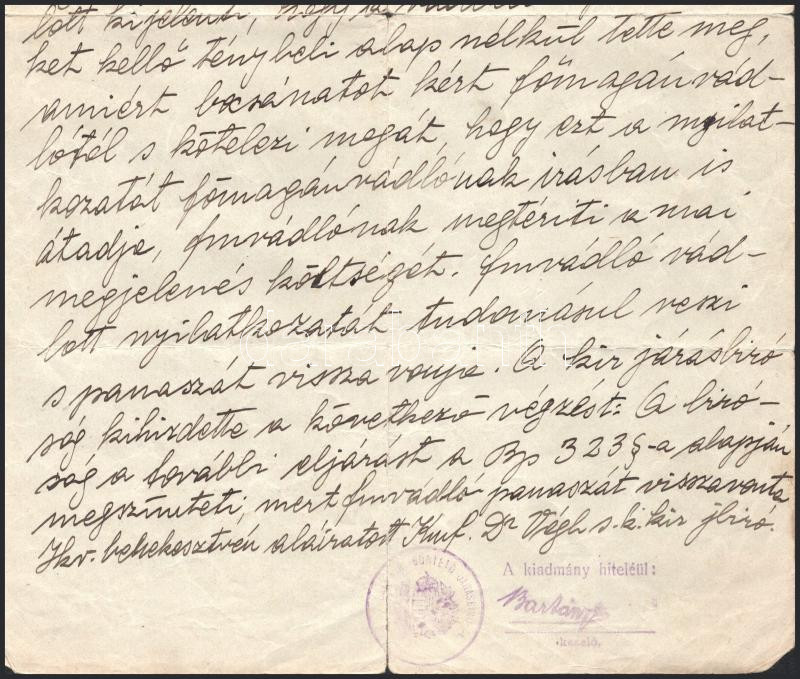 lott kijelenti, hogy a
ket kellő ténybeli alap nélkül tette meg,
amiért bocsánatot kért főmagánvád-
lótól s kötelezi magát, hogy ezt a nyilat-
kozatát főmagánvádlónak irásban is
átadja, fmvádlónak megtériti a mai
megjelenés költségét. fmvádló vád-
lott nyilatkozatát tudomásul veszi
s panaszát vissza vonja. A kir járásbiró
ság kihirdette a következő végzést: A biró-
ság a további eljárást a Bp 323§-a alapján
megszünteti, mert fmvádló panaszát visszavonta
Jkv. bekekesztvén aláiratott Kmf. Dr Végh s.k. kir jbiró.
A kiadmány hiteléül:
kezelő.